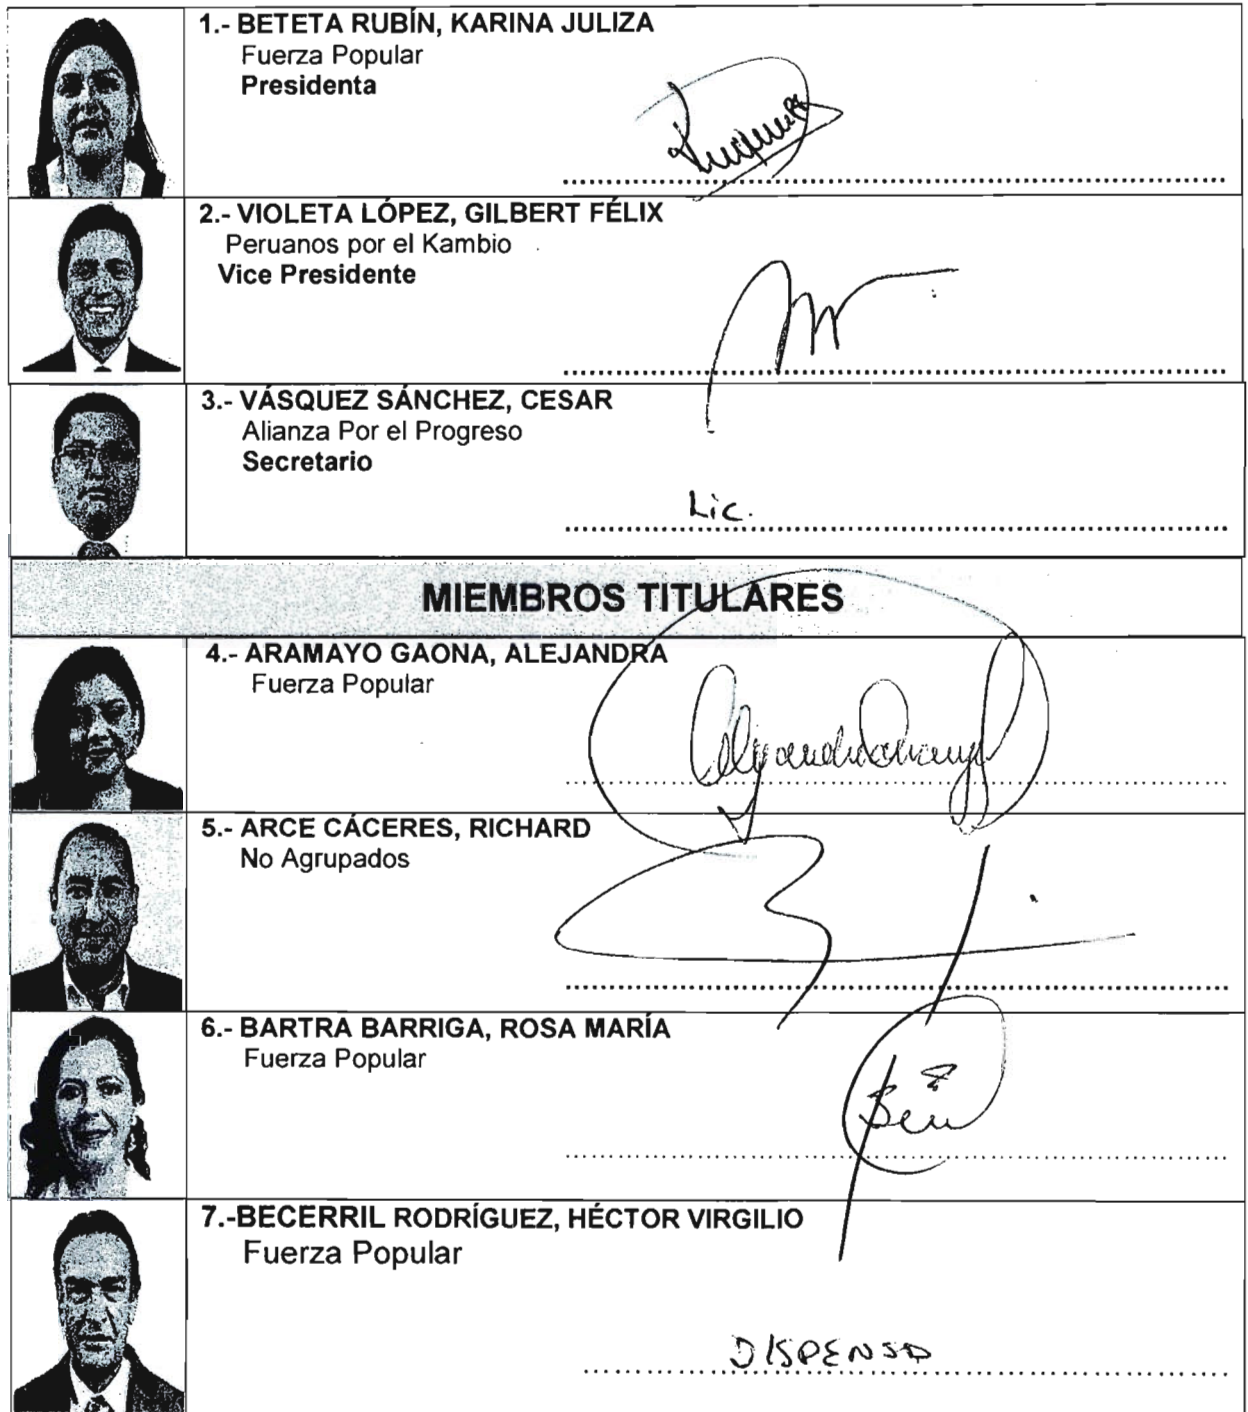 1.- BETETA RUBÍN, KARINA JULIZA
Fuerza Popular
Presidenta
2.- VIOLETA LÓPEZ, GILBERT FÉLIX
Peruanos por el Kambio
Vice Presidente
3.- VÁSQUEZ SÁNCHEZ, CESAR
Alianza Por el Progreso
Secretario
Lic.
MIEMBROS TITULARES
4.- ARAMAYO GAONA, ALEJANDRA
Fuerza Popular
5.- ARCE CÁCERES, RICHARD
No Agrupados
6.- BARTRA BARRIGA, ROSA MARÍA
Fuerza Popular
7.-BECERRIL RODRÍGUEZ, HÉCTOR VIRGILIO
Fuerza Popular
DISPENSA